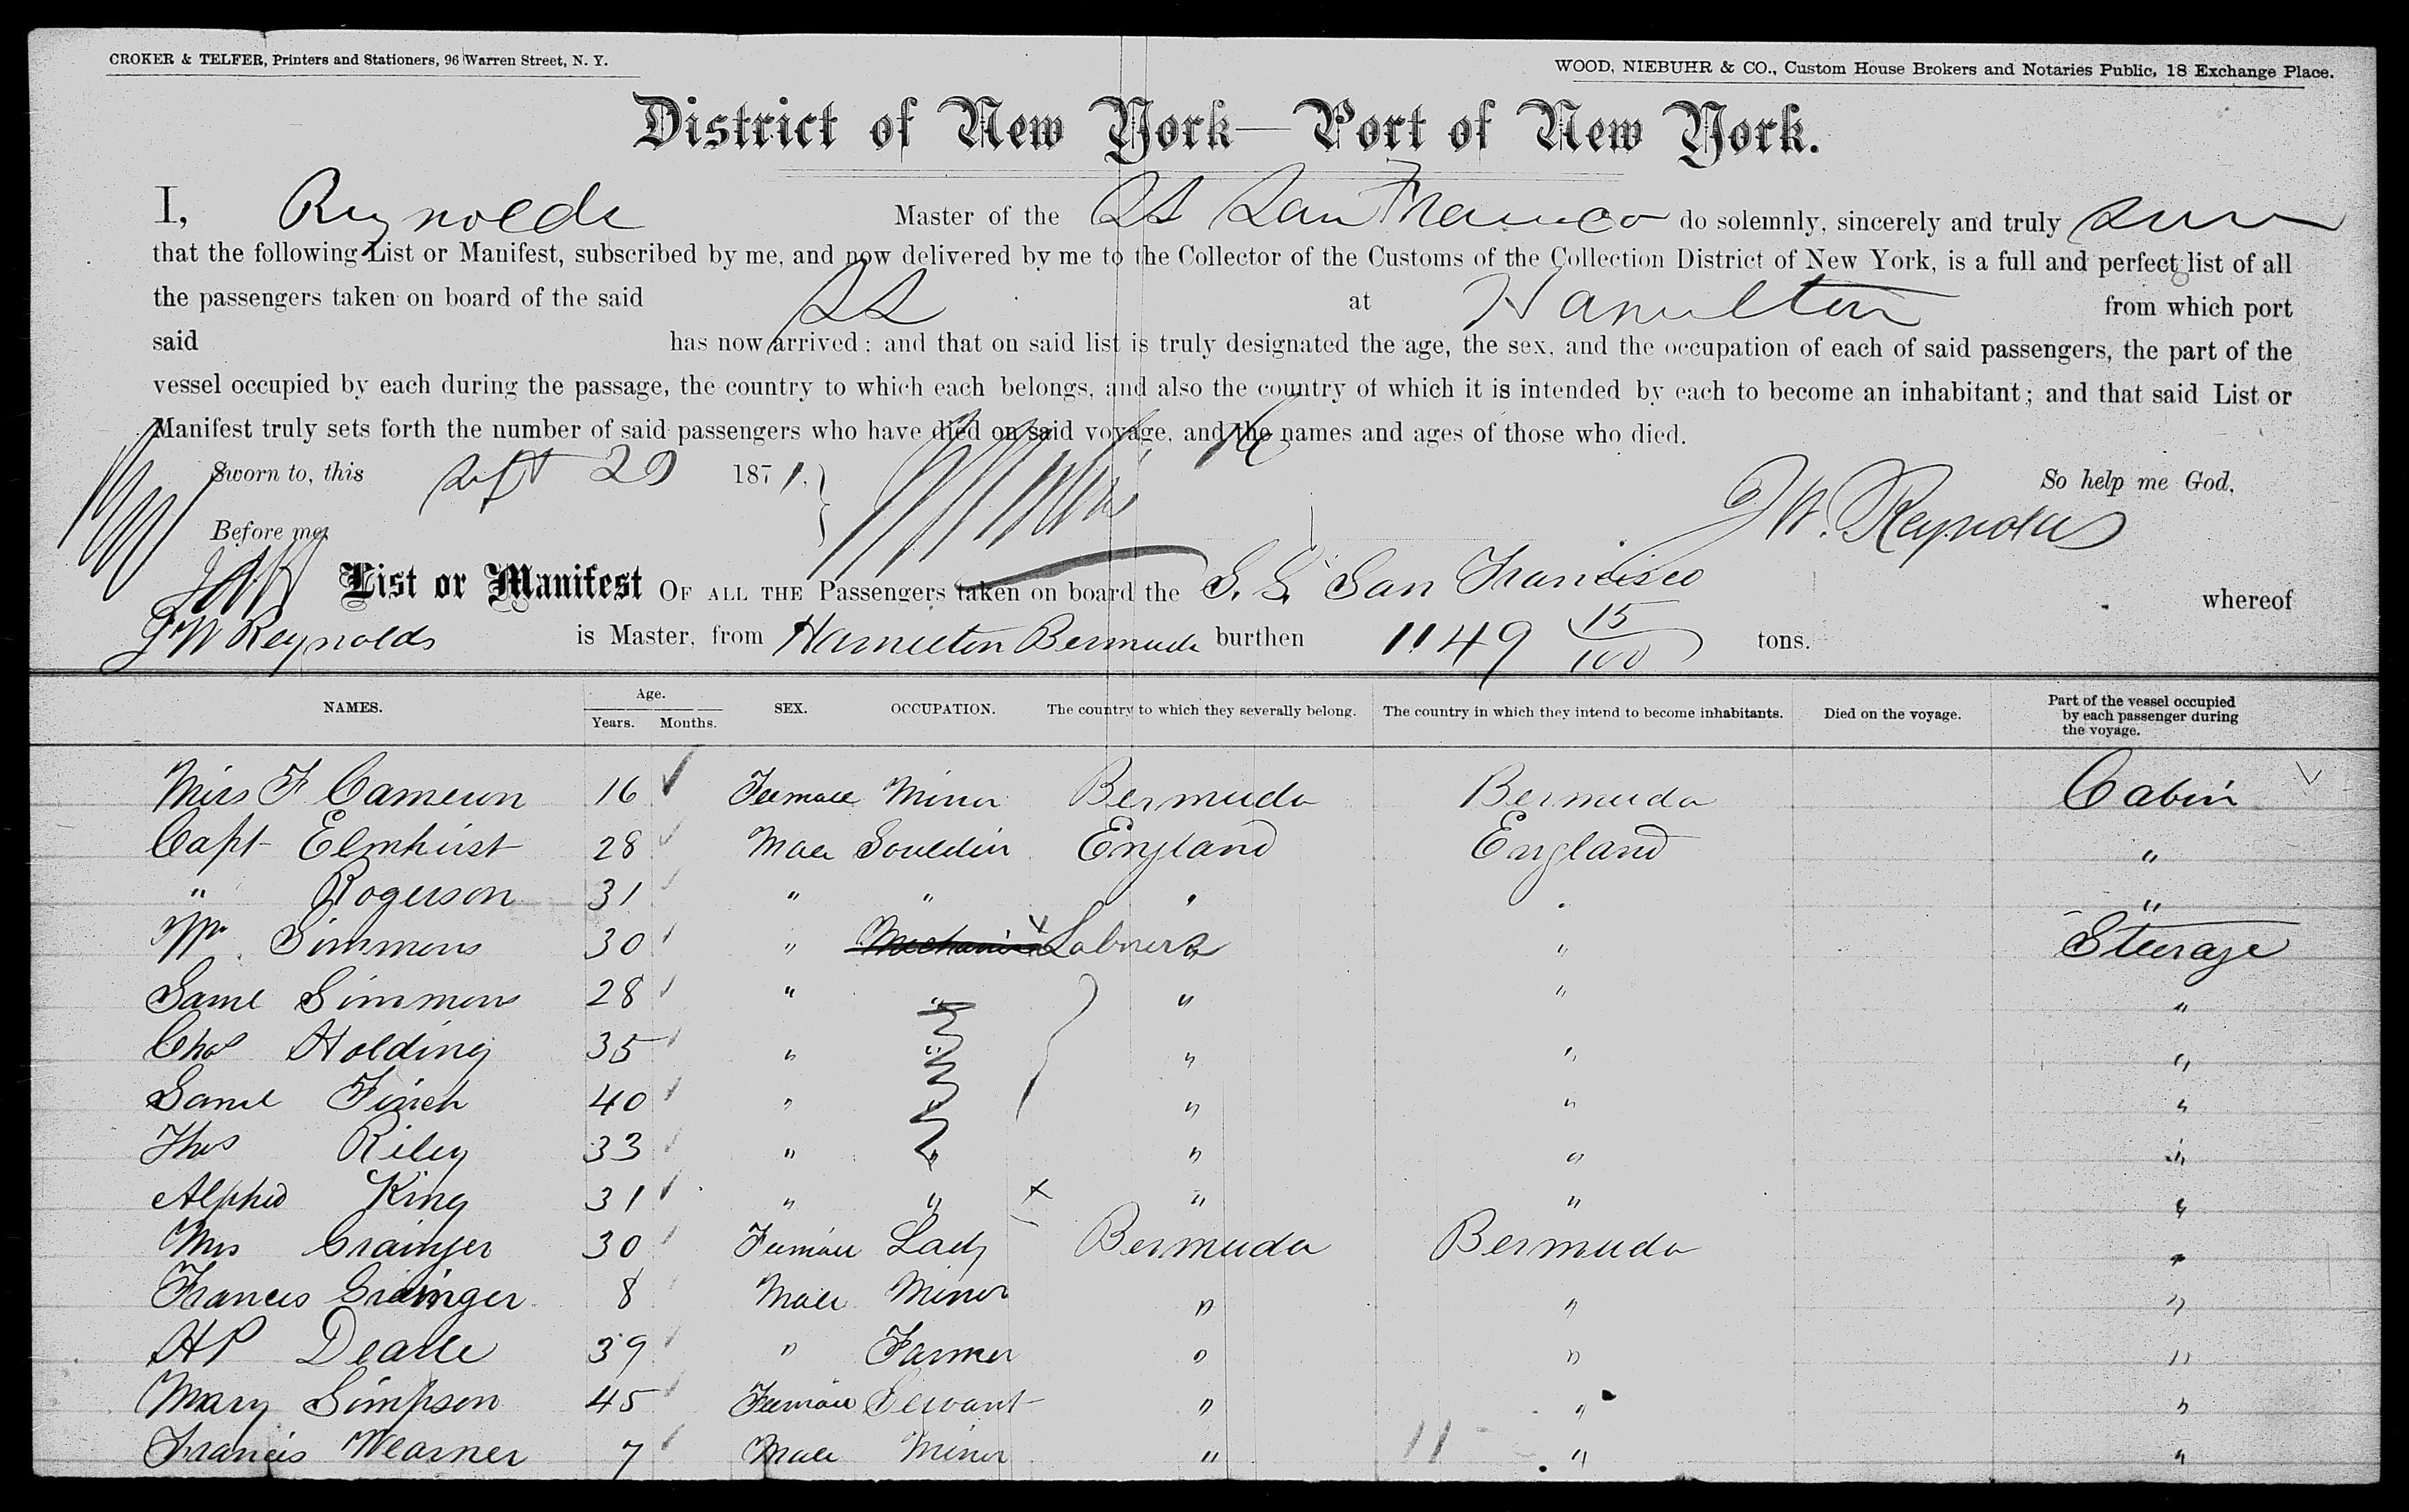 CROKER & TELFER, Printers and Stationers, 96 Warren Street, N. Y.
WOOD, NIEBUHR & CO., Custom House Brokers and Notaries Public, 18 Exchange Place.
District of New York—Port of New York.
I, Reynolds Master of the SS San Francisco do solemnly, sincerely and truly
that the following List or Manifest, subscribed by me, and now delivered by me to the Collector of the Customs of the Collection District of New York, is a full and perfect list of all
the passengers taken on board of the said SS at Hamilton from which port
said has now arrived; and that on said list is truly designated the age, the sex, and the occupation of each of said passengers, the part of the
vessel occupied by each during the passage, the country to which each belongs, and also the country of which it is intended by each to become an inhabitant; and that said List or
Manifest truly sets forth the number of said passengers who have died on said voyage, and the names and ages of those who died.
Sworn to, this Sept 29 1871. So help me God,
Before me, J W. Reynolds
List or Manifest OF ALL THE Passengers taken on board the S. S. San Francisco whereof
J W Reynolds is Master, from Hamilton Bermuda burthen 1149 15/100 tons.
NAMES. Age. Years. Months. SEX. OCCUPATION. The country to which they severally belong. The country in which they intend to become inhabitants. Died on the voyage. Part of the vessel occupied by each passenger during the voyage.
Miss F Cameron 16 Female Minor Bermuda Bermuda Cabin
Capt Elmhirst 28 Male England England "
" Rogerson 31 " " " " "
Simmons 30 " Mechanics Laborers " Steerage
Saml Simmons 28 " " " " "
Chas Holding 35 " " " " "
Saml Finch 40 " " " " "
Thos Riley 33 " " " " "
King 31 " " x " " "
Mrs Grainger 30 Female Lady Bermuda Bermuda "
Francis Grainger 8 Male Minor " " "
HP 39 " Farmer " " "
Mary Simpson 45 Female Servant " " "
Francis Wearner 7 Male Minor " 11 " "